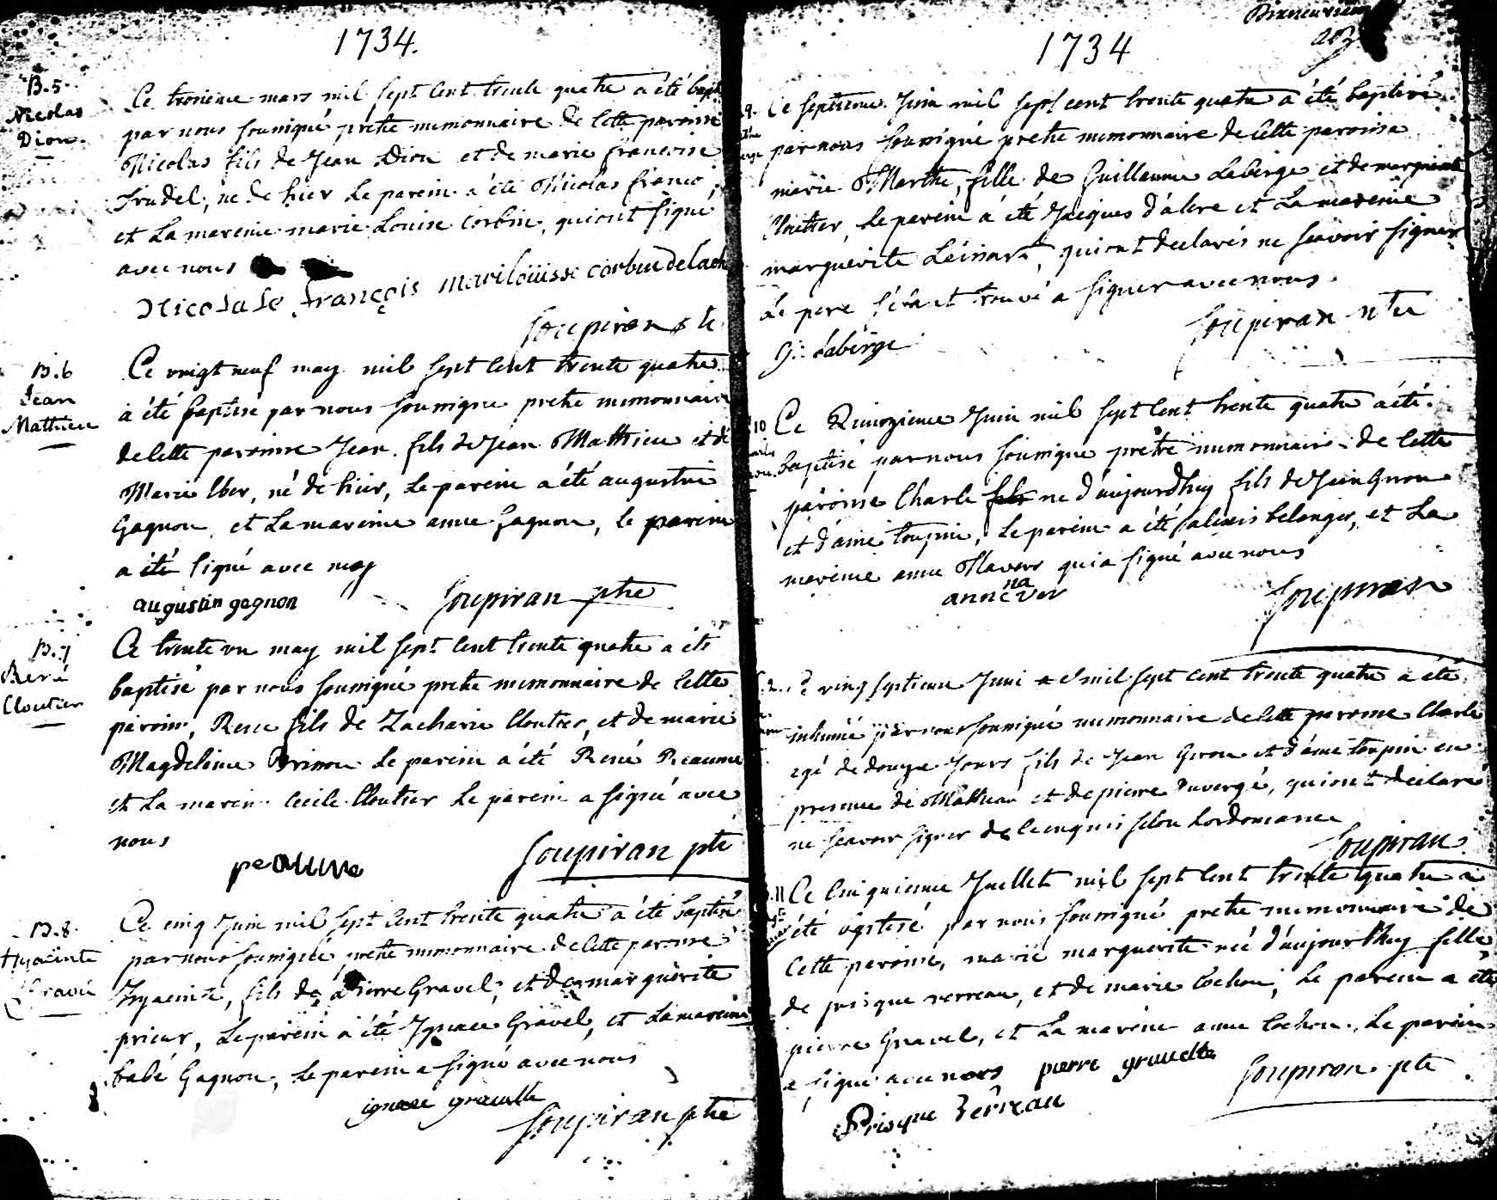 1734.
B.5.
Nicolas
Dion.
Ce troisieme mars mil sept cent trente quatre a été bapt
par nous soussigné pretre missionnaire de cette paroisse
Nicolas fils de Jean Dion et de marie francoise
trudel, né de hier le parein a été Nicolas franco
et La mareine marie Louise Corbin, qui ont signé
avec nous
Nicolas le françois marilouisse corbin delach
Soupiran
B.6
Jean
Mathieu
Ce vingt neuf may mil sept cent trente quatre
à été baptisé par nous soussigné pretre missionnaire
de cette paroisse Jean fils de Jean Matthieu et de
Marie Eber, né de hier, Le parein a été augustin
Gagnon, et La mareine anne gagnon, le parein
a été signé avec moy
augustin gagnon
Soupiran ptre
B.7
René
Cloutier
Ce trente un may mil sept cent trente quatre a été
baptisé par nous soussigné pretre missionnaire de cette
paroisse, René fils de Zacharie Cloutier, et de marie
Magdeleine Brisson Le parein a été René Reaume
et La marein Cecile Cloutier Le parein a signé avec
nous
reaume
Soupiran ptre
B.8.
Hyacinte
Gravel
Ce cinq Juin mil sept cent trente quatre a été baptisé
par nous soussigné pretre missionnaire de cette paroisse
hyacinte, fils de pierre Gravel, et de marguerite
prieur, Le parein a été Ignace Gravel, et La mareine
babé Gagnon, Le parein a signé avec nous
ignace gravelle
Soupiran ptre
1734
9.
Ce septieme Juin mil sept cent trente quatre a été baptisé
par nous soussigné pretre missionnaire de cette paroisse
marie Marthe, fille de Guillaume Laberge et de marguerite
, Le parein a été Jacques d'alere et La mareine
marguerite , qui ont declarés ne sçavoir signer
Le pere s'étant trouvé a signer avec nous
G: Laberge
Soupiran
10
Ce Quinzieme Juin mil sept cent trente quatre a été
baptisé par nous soussigné pretre missionnaire de cette
paroisse Charle fils né d'aujourdhuy fils de Jean Giron
et d'anne toupin, Le parein a été alexis belanger, et La
mareine anne Naver qui a signé avec nous
na
anne ver
Soupiran
Ce ving septieme Juin mil sept cent trente quatre a été
inhumé par nous soussigné missionnaire de cette paroisse Charle
agé de douze Jours fils de Jean Giron et d'anne toupin en
presence de Mathieu et de pierre duvergé, qui ont declaré
ne sçavoir signer de ce enquis selon Lordonnance
Soupiran
11
Ce cinquieme Juillet mil sept cent trente quatre a
été baptisé par nous soussigné pretre missionnaire de
cette paroisse, marie marguerite née d'aujourdhuy fille
de prisque verreau, et de marie Cochon, Le parein a été
pierre Gravel, et La mareine anne Cochon, Le parein
a signé avec nous pierre gravelle
Soupiran ptre
Prisque Verreau